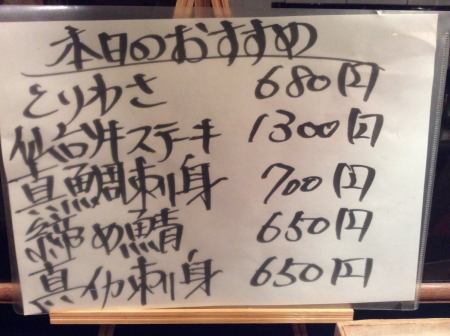 本日のおすすめ
とりわさ 680円
仙台牛ステーキ 1300円
真鯛刺身 700円
締め鯖 650円
真イカ刺身 650円